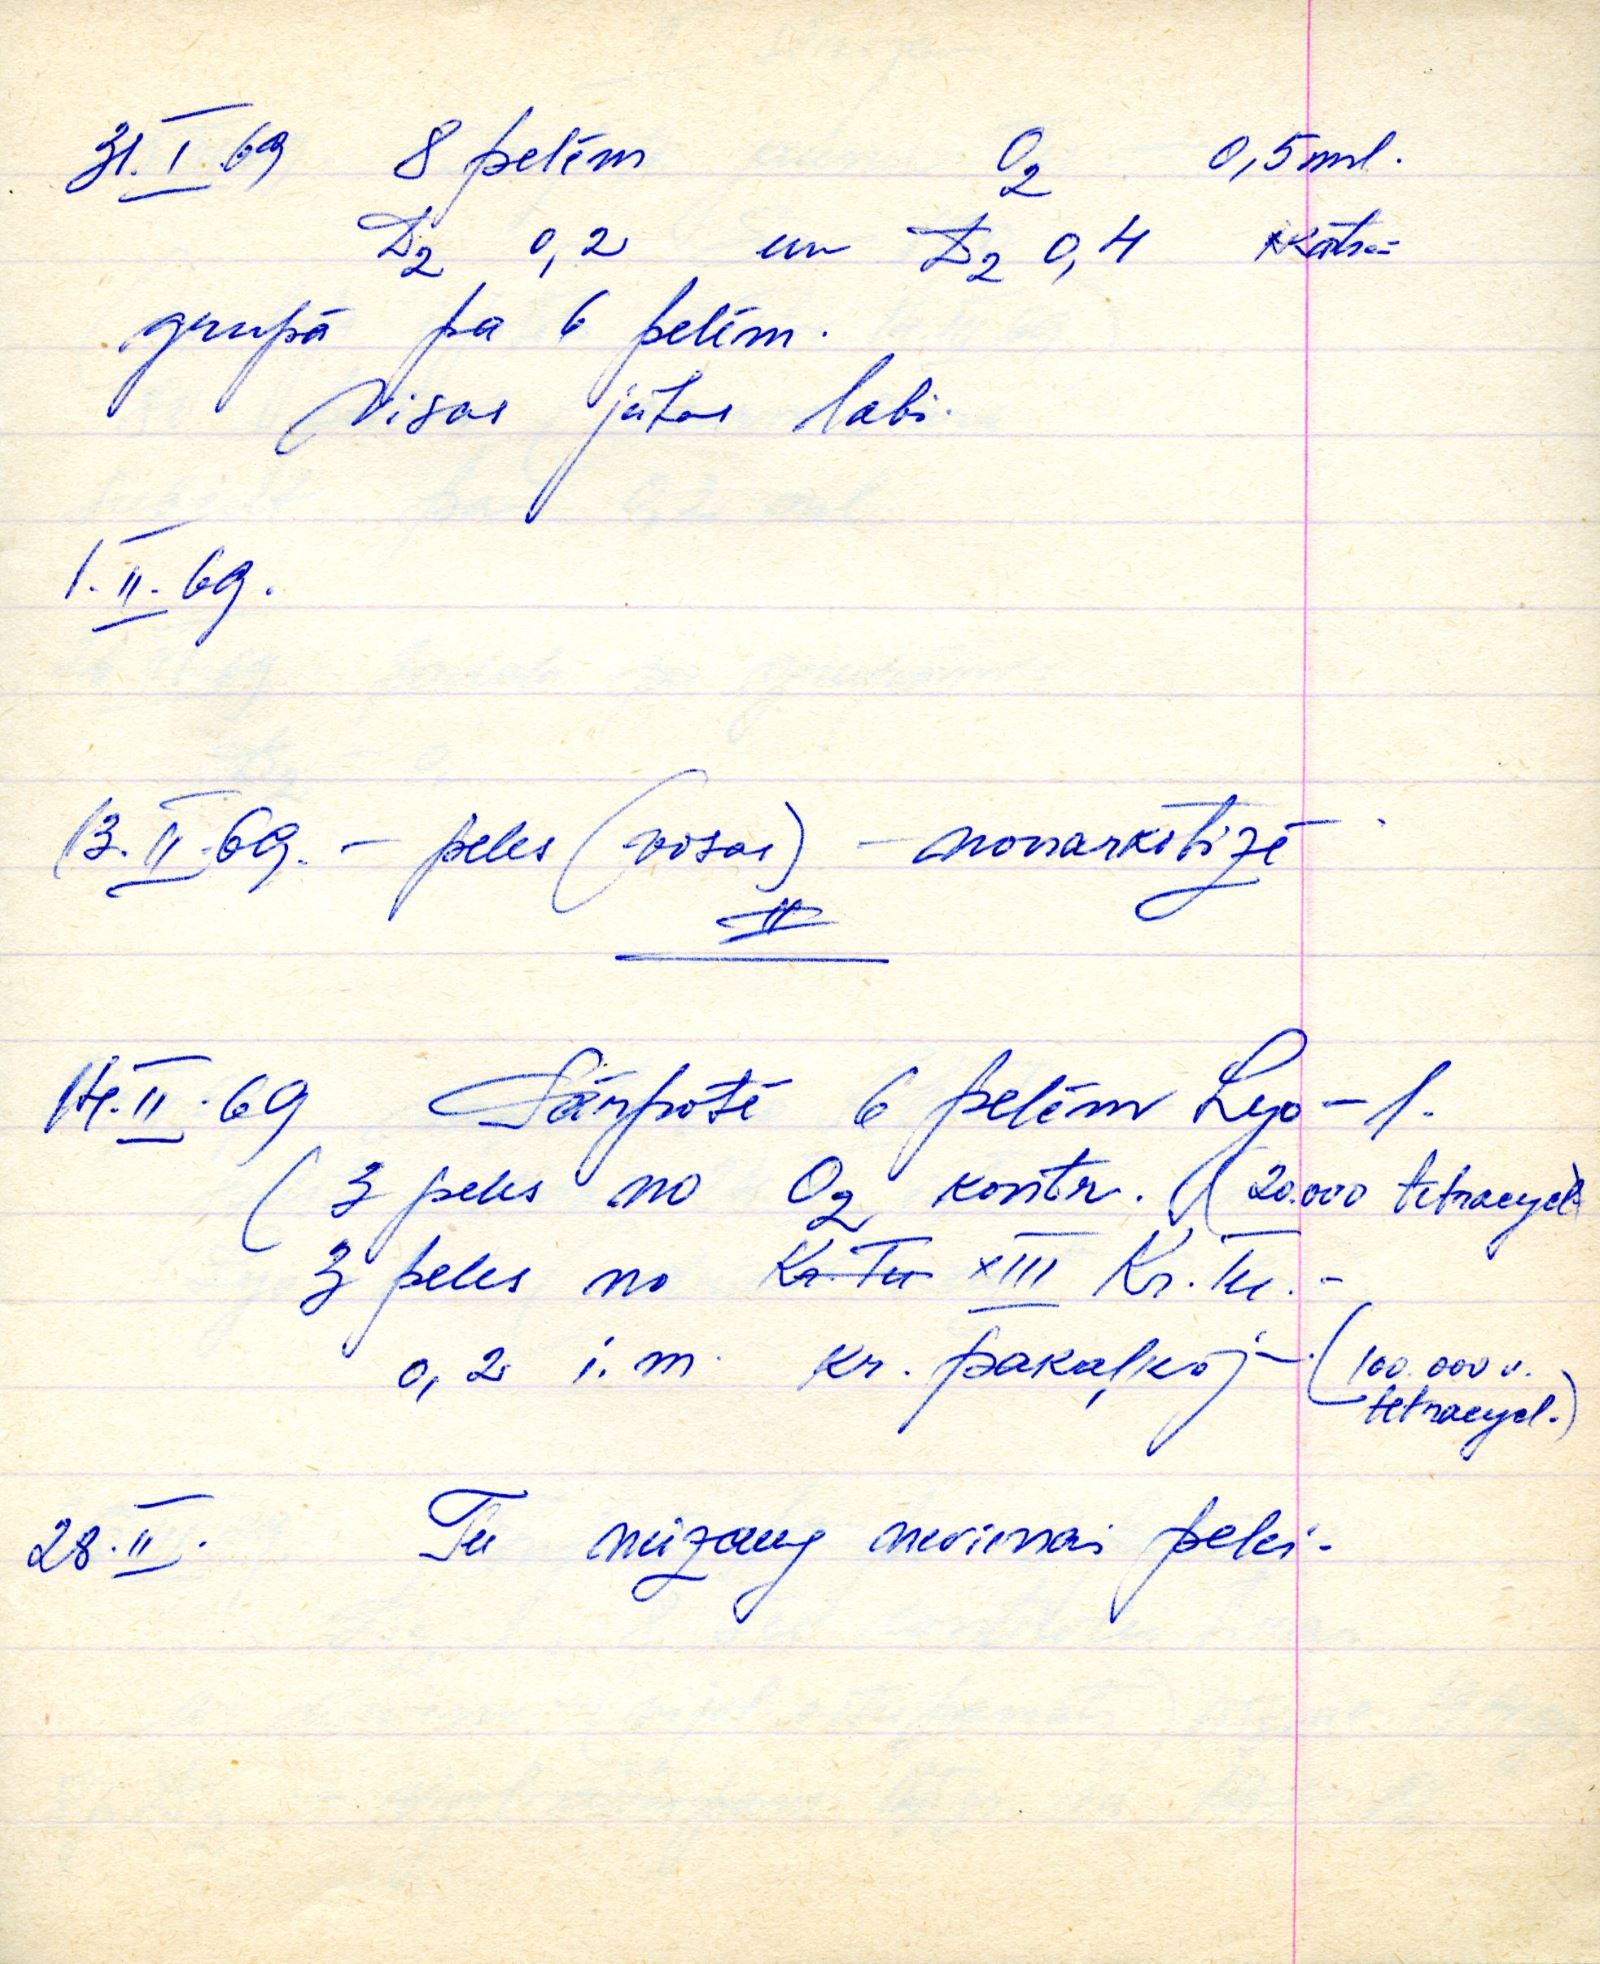 31.I.69 8 pelēm O2 0,5 ml.
D2 0,2 un D2 0,4 katrā
grupā pa 6 pelēm.
Visas jūtas labi.
1.II.69.
13.II.69. – peles (visas) – nonarkotizē
II
14.II.69 Pārpotē 6 pelēm Lyo-1.
(3 peles no O2 kontr. (20.000 tetracycl.
3 peles no Kr. Tu XIII Kr. Tu. -
0,2 i.m. kr. pakaļkāj – (100.000 v.
tetracycl.)
28.II. Tu neizaug nevienai pelei.